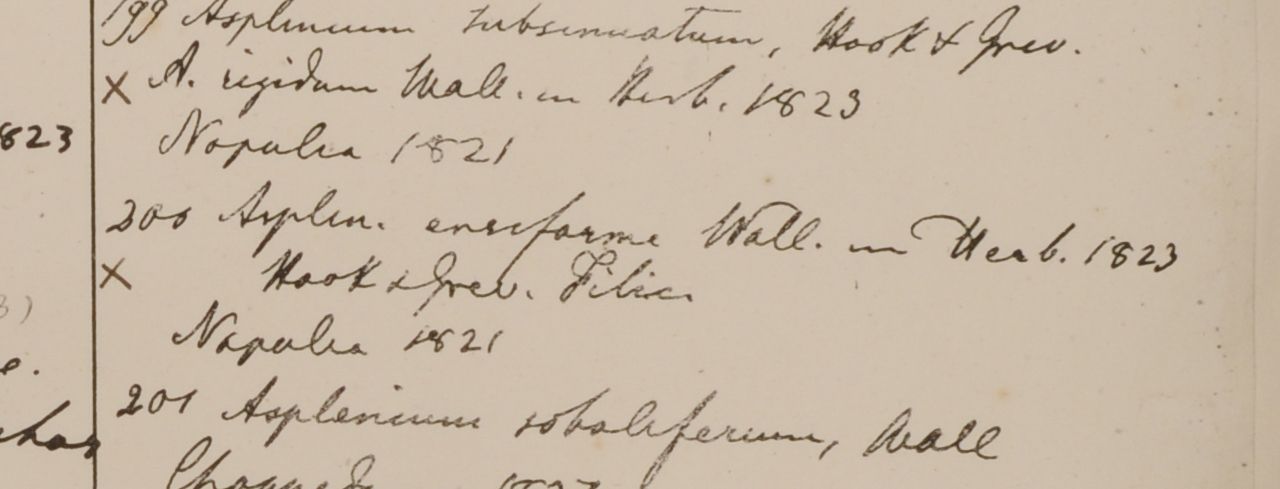 1823
3)
e.
199 Asplenium subsinuatum, Hook & Grev.
× A. rigidum Wall. in Herb. 1823
Napalia 1821
200 Asplen. ensiforme Wall. in Herb. 1823
× Hook & Grev. Filic.
Napalia 1821
201 Asplenium soboliferum, Wall